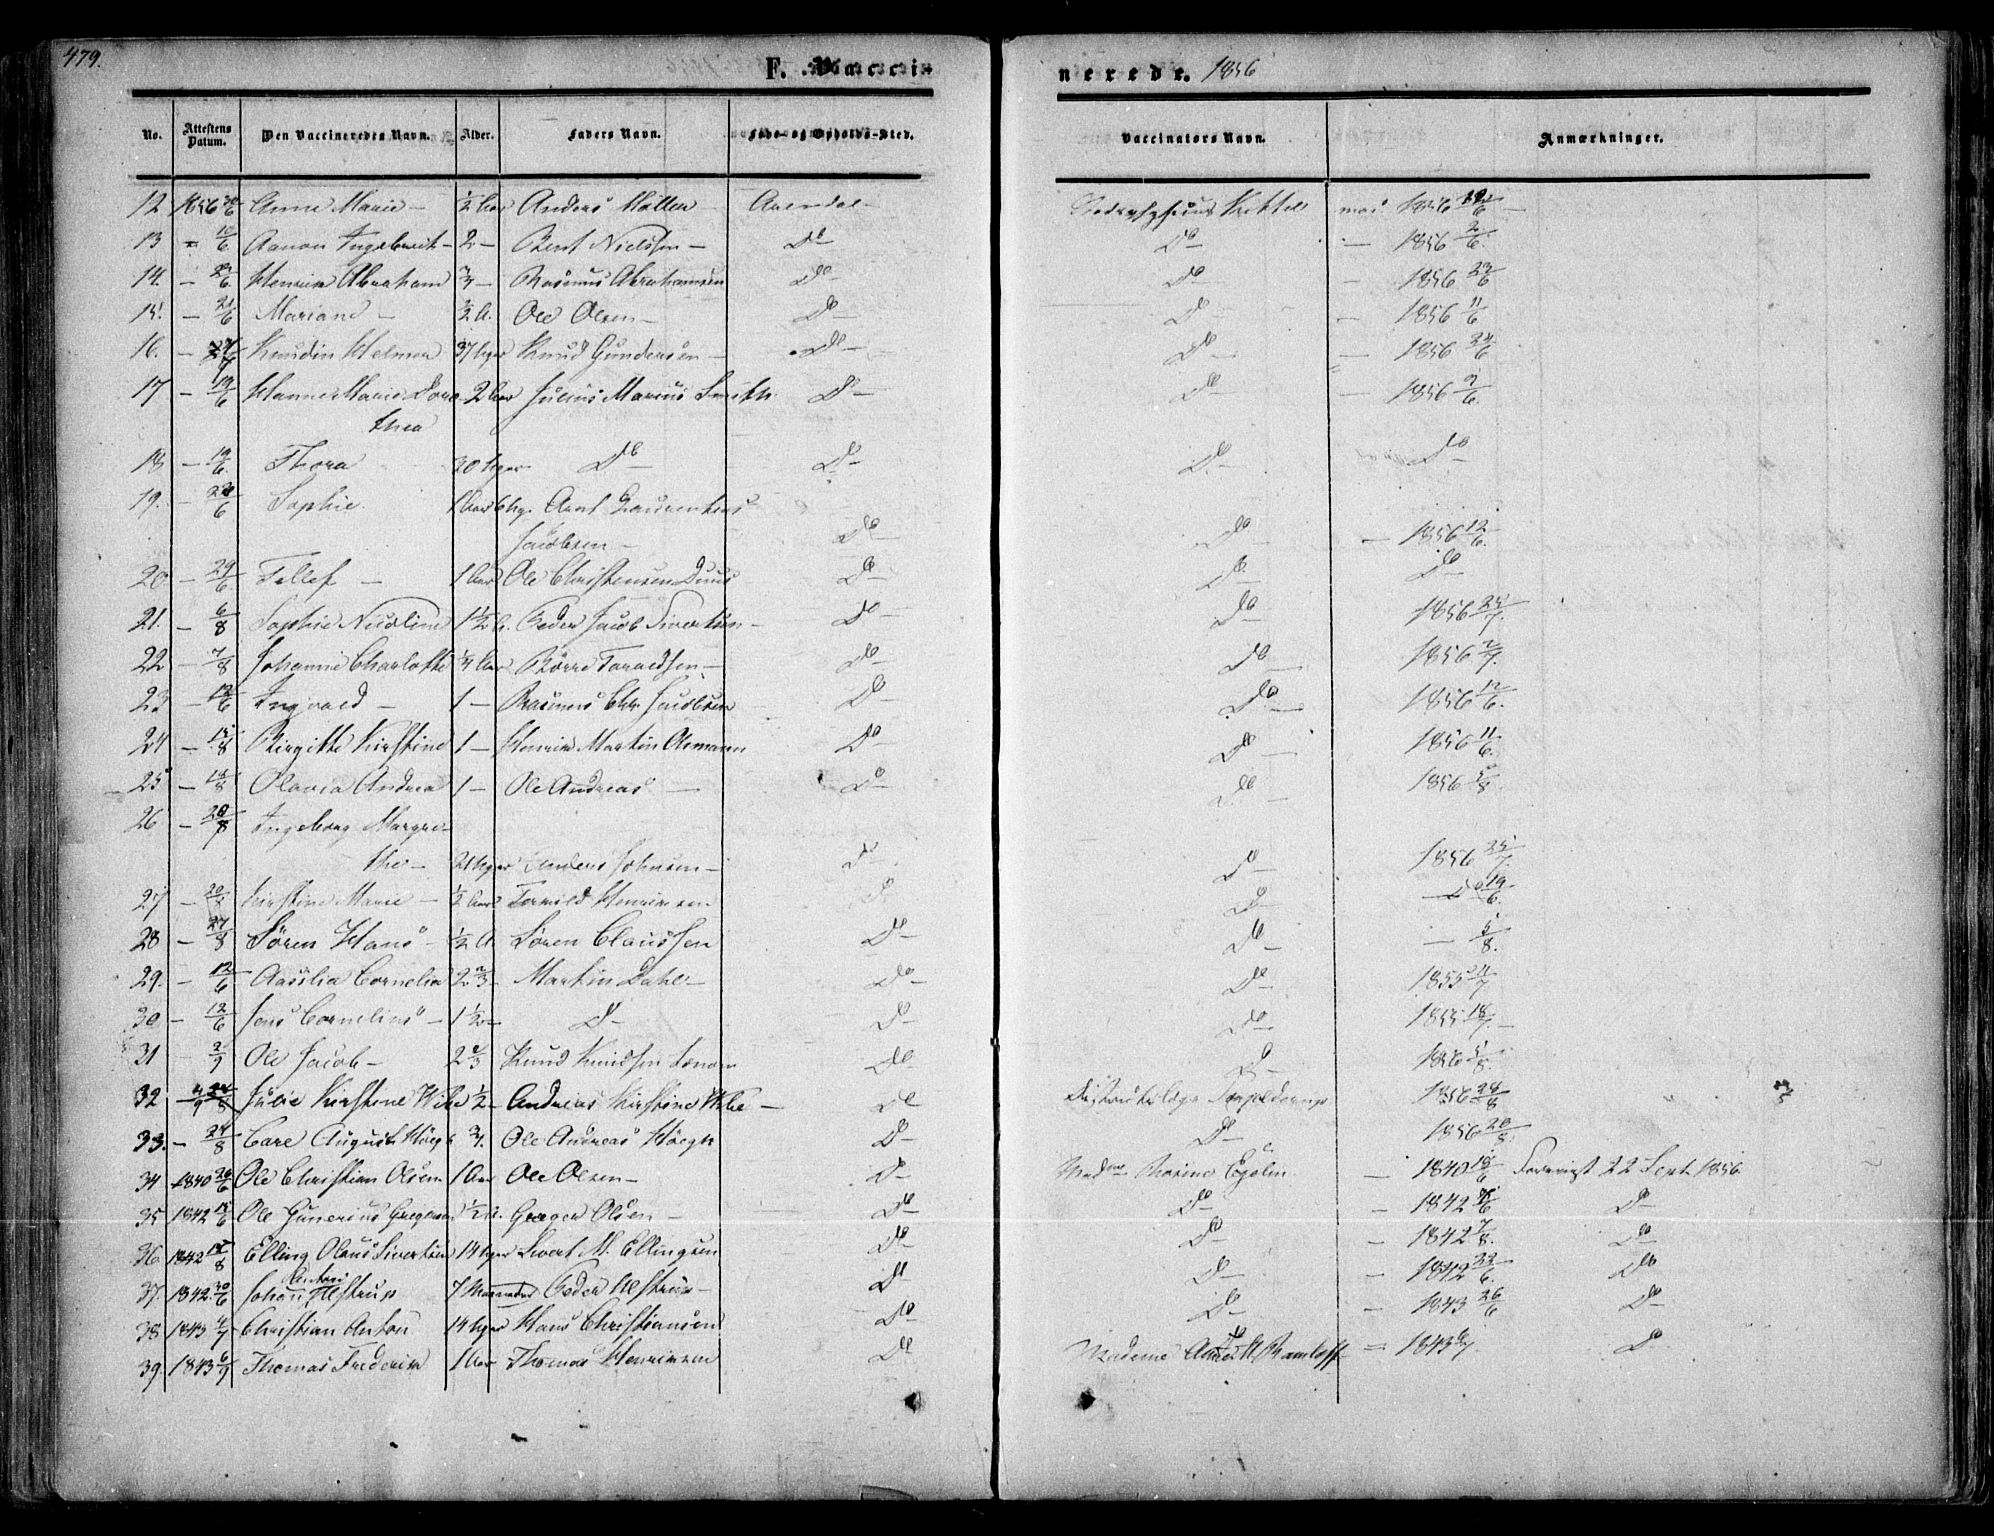 479.
F. Vacci-
nerede. 1856
No. Attestens Datum. Den Vaccineredes Navn. Alder. Faders Navn. Føde- og Opholds-Sted. Vaccinators Navn. Anmærkninger.
12 1856 Anne Marie - 1/2 Aar Anders Møller - Arendal - 1856
13 - 10/6 Aanon Ingebret - 2 - Bent Nielsen - Do - Do - - 1856 2/6
14. - Henrik Abraham 3/4 - Rasmus Abrahamsen Do - Do - - 1856 23/6
15. - 21/6 Mariane - Ole Olsen - Do - Do - - 1856 11/6
16. - Knudin Helmer 37 Uger Knud Gundersen - Do - Do - - 1856 24/6
17 - 19/6 Hanne Marie Doro- 2 Aar Julius Marius Smith Do - Do - - 1856 9/6
thea
18 - 19/6 Thora 20 Uger Do - Do - Do - Do -
19. - Sophie 1 Aar 6 Ug. Arnt Laurentius
Jacobsen - Do - Do - - 1856 12/6
20 - 29/6 Tellef - 1 Aar Ole Christensen Duus Do - Do - Do -
21. - 6/8 Sophie Nicoline 1 1/2 A. Peder Jacob Sivertsen - Do - Do - 1856 25/7
22 - 7/8 Johanne Charlotte 1/4 Aar Børre Taraldsen - Do - Do - 1856 2/7
23 - 12/6 Ingvald - 1 - Rasmus Chr. Jacobsen Do - Do - 1856 12/6
24 - 15/8 Birgitte Kirstine 1 - Henrik Martin Asmann Do - Do - 1856 11/6
25 - 18/8 Olavia Andrea 1 - Ole Andreas - Do - Do - 1856 5/8
26 - Ingeborg Margre-
the - 21 Uger Anders Johnsen - Do - Do - 1856 25/7
27 - Kirstine Marie - 1/2 Aar Tarald Henriksen Do Do - Do 19/6
28 - 27/8 Søren Hans - 1/2 A. Søren Claussen Do - Do - - 5/8
29. - 12/6 Aasilia Cornelia 2 2/3 - Martin Dahl - Do - Do - 1855 11/7
30 - 12/6 Jens Cornelius - 1 1/2 - Do - Do - Do - 1855 18/7
31 - 2/9 Ole Jacob - 2 2/3 Knud Knudsen Do Do - 1856 5/8
32 4/9 Julie Kirstine Wibe 1/2 - Andreas Kirstine Wibe - Do - 1856 28/8
33. - 24/8 Carl August Høegh 3/4. Ole Andreas Høegh Do - Do - 1856 20/8
34 - 1840 26/6 Ole Christian Olsen 1 Aar Ole Olsen - Do - - 1840 18/6 Foreviist 22 Sept. 1856
35 1842 15/6 Ole Gunerius Gregersen 1/2 A. Greger Olsen - Do - Do - - 1842 Do -
36 1842 Elling Olaus Sivertsen 14 Uger Sivert M. Ellingsen Do - Do - - 1842 7/8 Do -
Anton
37. 1842 30/6 Johan Alstrup 7 Maaneder Peder Alstrup - Do Do - - 1842 22/6 Do
38 1843 4/7 Christian Anton 14 Uger Hans Christiansen Do - Do - - 1843 26/6 Do -
39. 1843 6/9 Thomas Frederik 1 Aar Thomas Henriksen Do Madame - 1843 Do